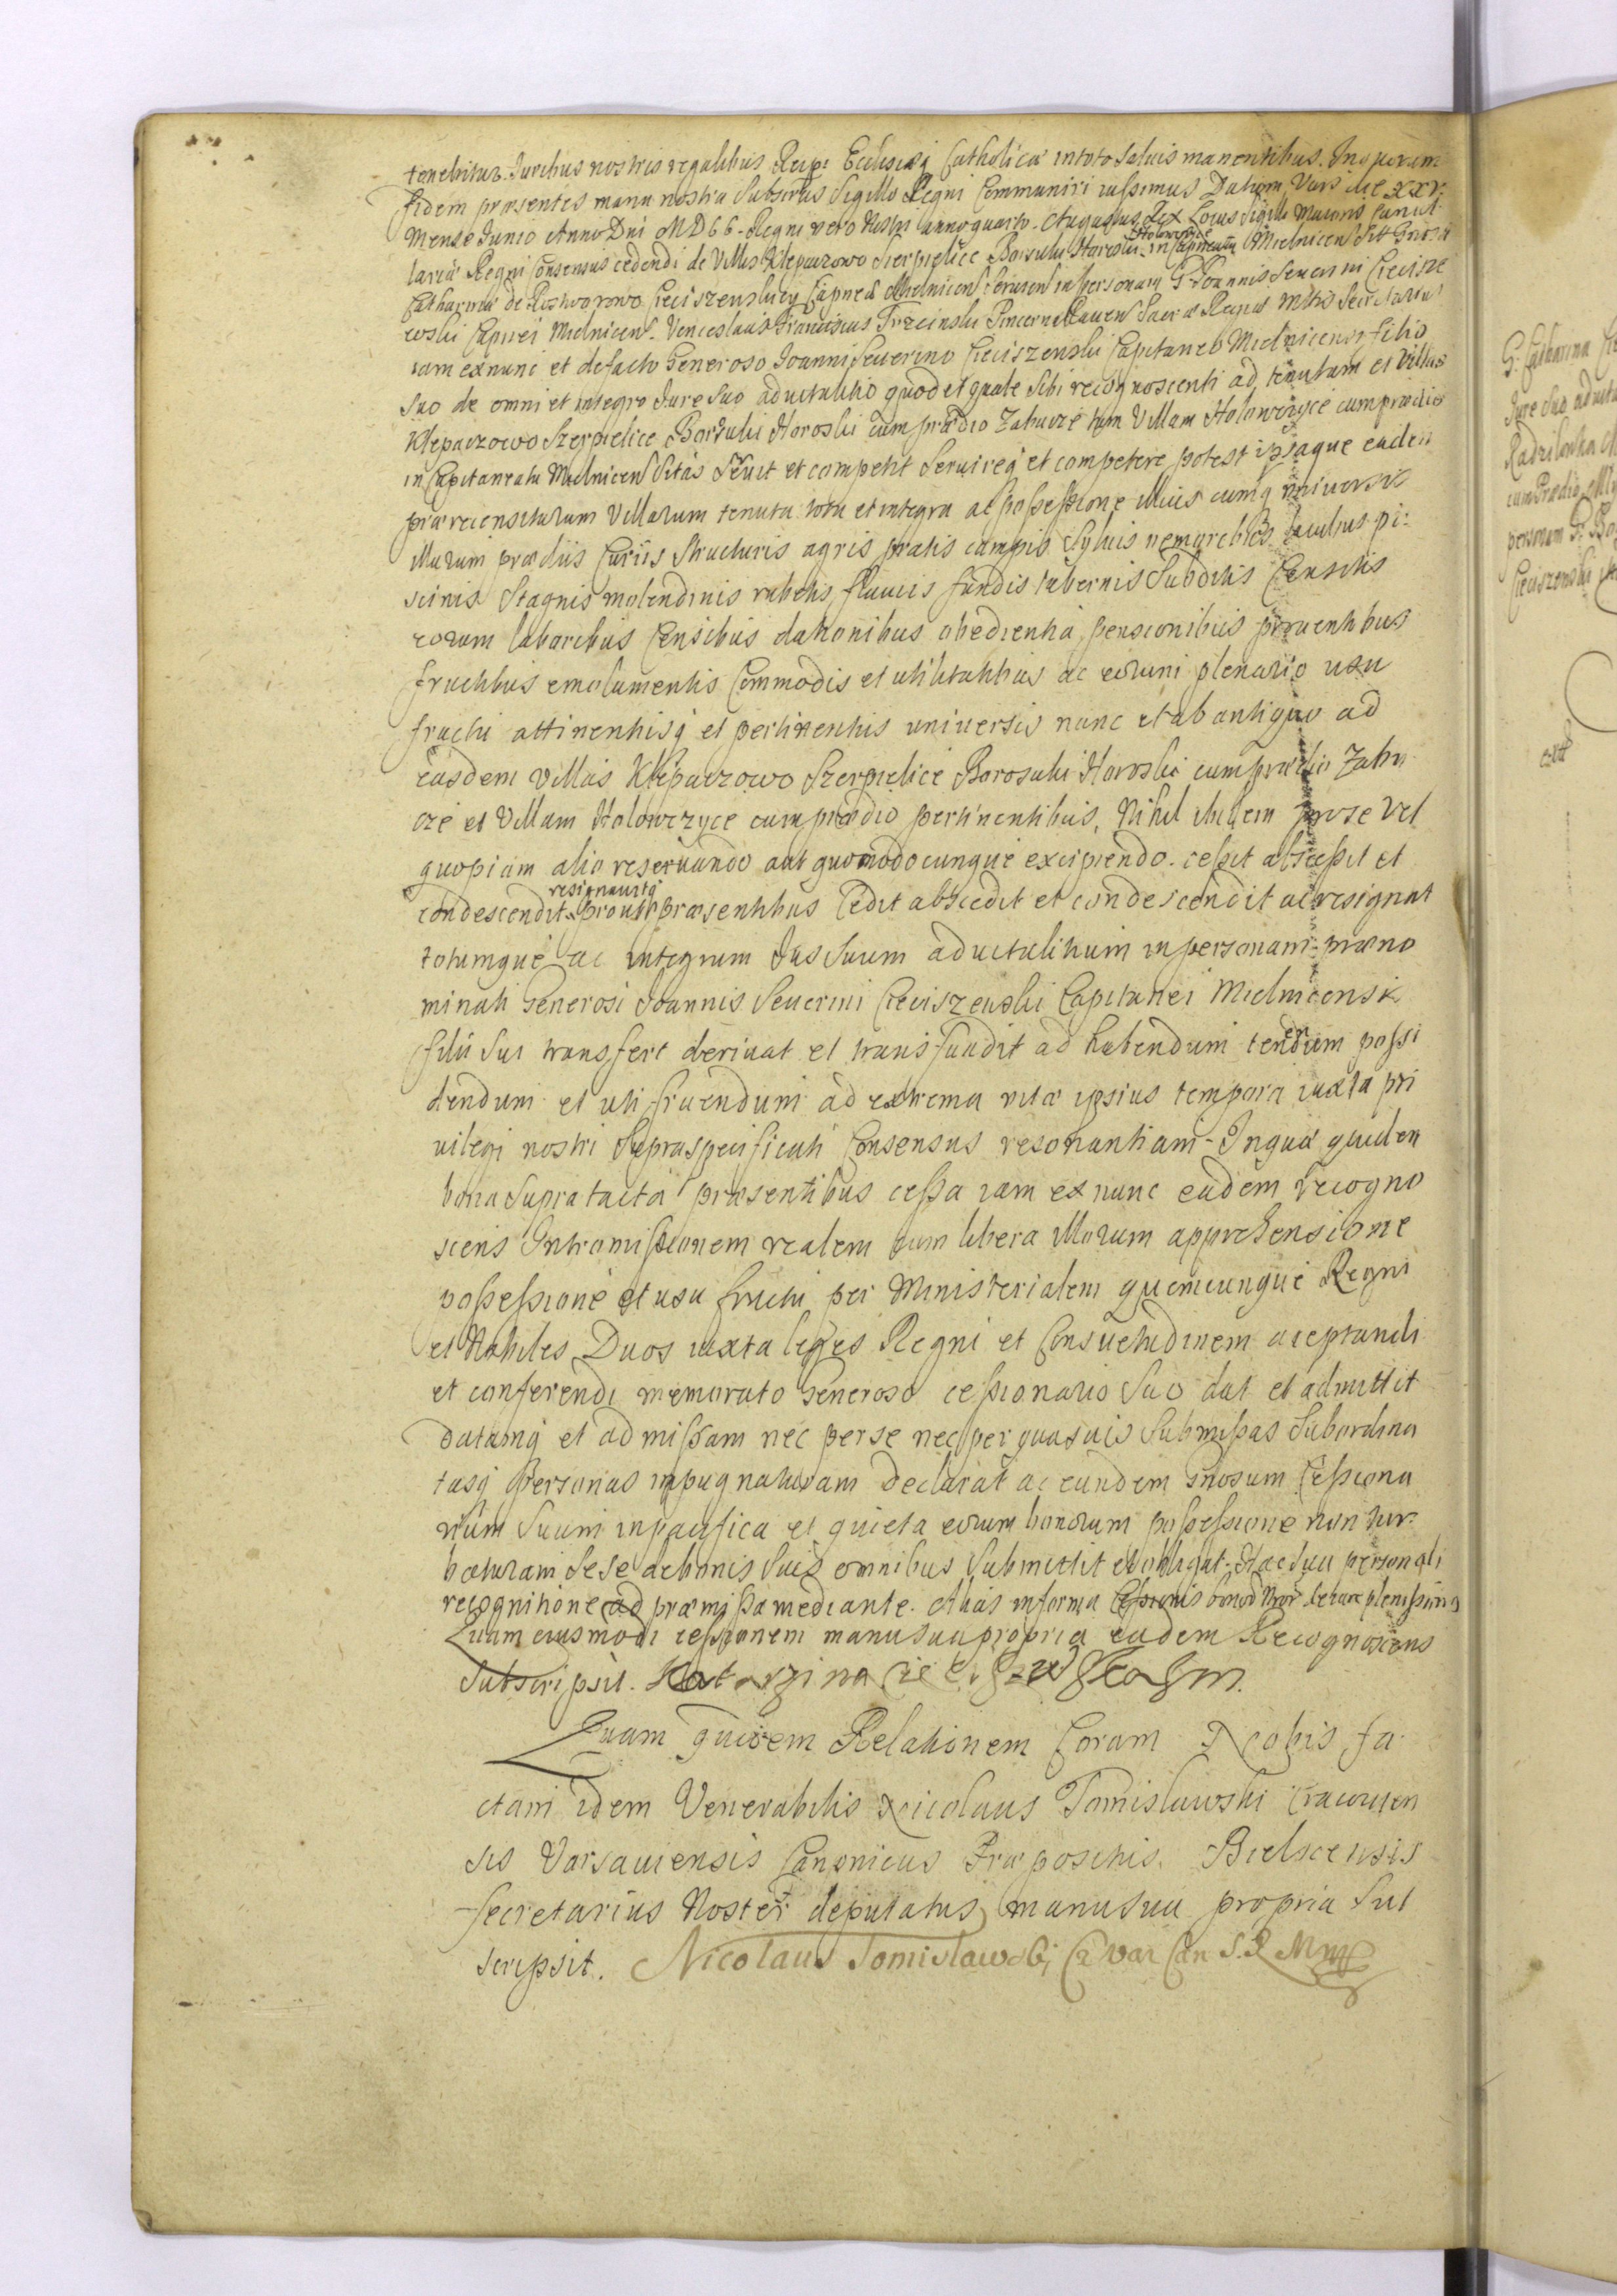 tenebitur. Juribus nostris regalibus Reip: Ecclesiæq Catholicæ intoto Saluis manentibus. Inquorum
fidem præsentes manu nostra Subscriptas Sigillo Regni Communiri iussimus Datum Vars die XXV.
Mense Junio Anno Dni MD Regni vero Nostri anno quarto. Augustus Rex Locus Sigilli Maioris Cancel
lariæ Regni Consensus cedendi de Villis Klepaczowo Sierpielice Borsuki Haroski Holowczyce in Capitneatu Mielnicen Sitt Gnosæ
Catharinæ de Roztworowo Cieciszenskiey Capneæ Mielnicen Seruien in personam G Joannis Seuerini Ciecisze
wski Capnei Mielnicen. Venceslaus Franciscus Trzcinski Pincerna Rauen Sacræ Regiæ Mttis Secretarius
iam exnunc et defacto Generoso Joanni Seuerino Cieciszenski Capitaneo Mielnicensi filio
suo de omni et integro Jure Suo aduitalitio quod et quale Sibi recognoscenti ad tenutam et Villas
Klepaczowo Szerpielice Borsuki Horoski cum prædio Zabuze tum Villam Holowczyce cum prædio
in Capitaneatu Mielnicen Sitas Seruit et competit Seruireq et competere potest ipsaque eadem
prærecensitarum Villarum tenuta tota et integra ac possessione illius cumq universis
illarum prædiis Curiis Structuris agris pratis campis Syluis nemoribus lacubus pi:
scinis Stagnis molendinis rubetis fluuiis fundis tabernis Subditis Censitis
eorum laboribus Censibus dationibus obedientia pensionibus prouentibus
fructibus emolumentis Commodis et utilitatibus ac eorum plenario usu
fructu attinentiisq et pertinentiis universis nunc et ab antiquo ad
easdem villas Klepaczowo Szerpielice Borosuki Horoski cum prædio Zabu
ze et Villam Holowczyce cum prædio pertinentibus, Nihil ibidem pro se vel
quopiam alio reseruando aut quomodocunque excipiendo. cessit abscessit et
condescendit resignauitq prout præsentibus Cedit abscedit et condescendit ac resignat
totumque ac integrum Jus Suum aduitalitium in personam præno
minati Generosi Joannis Seuerini Cieciszenski Capitanei Mielnicensis
filii Sui transfert deriuat et transfundit ad habendum tenendum possi
dendum et uti fruendum ad extrema vitæ ipsius tempora iuxta pri
uilegi nostri Supraspecificati Consensus resonantiam. Inquæ quidem
bona Supratacta præsentibus cessa iam ex nunc eadem recogno
scens Intromissionem realem cum libera illorum apprehensione
possessione et usu fructu per Ministerialem quemcunque Regni
et Nobiles Duos iuxta leges Regni et Consuetudinem aceptandi
et conferendi memorato Generoso cessionario Suo dat et admittit
datamq et admissam nec perse nec per quasuis Submissas Subordina
tasq Personas inpugnaturam declarat ac eundem Gnosum Cessiona
rium Suum inpacifica et quieta eorum bonorum possessione non tur
baturam Sese de bonis Suis omnibus Submittit et obligat. Hac Sua personali
recognitione ad præmissa mediante. Alias in forma Cessionis plenissima
Quam eiusmodi cessionem manu sua propria eadem Recognoscens
Subscripsit. Katarzina Cieciszewska
Quam quidem Relationem Coram Nobis fa
ctam idem Venerabilis Nicolaus Tomislawski Cracouien
sis Varsauiensis Canonicus Præpositus Bielscensis
Secretarius Noster deputatus manu sua propria Sub
scripsit. Nicolaus Tomislawski Cr Var Can S. R M mp
G. Catharina
Jure Suo aduita
cum Prædio
personam
Cieciszenski